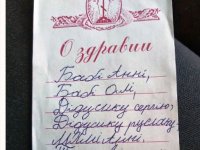 О здравии
Бабі Анні,
Бабі Олі,
Дідусику Сергію,
Дідусику Руслану